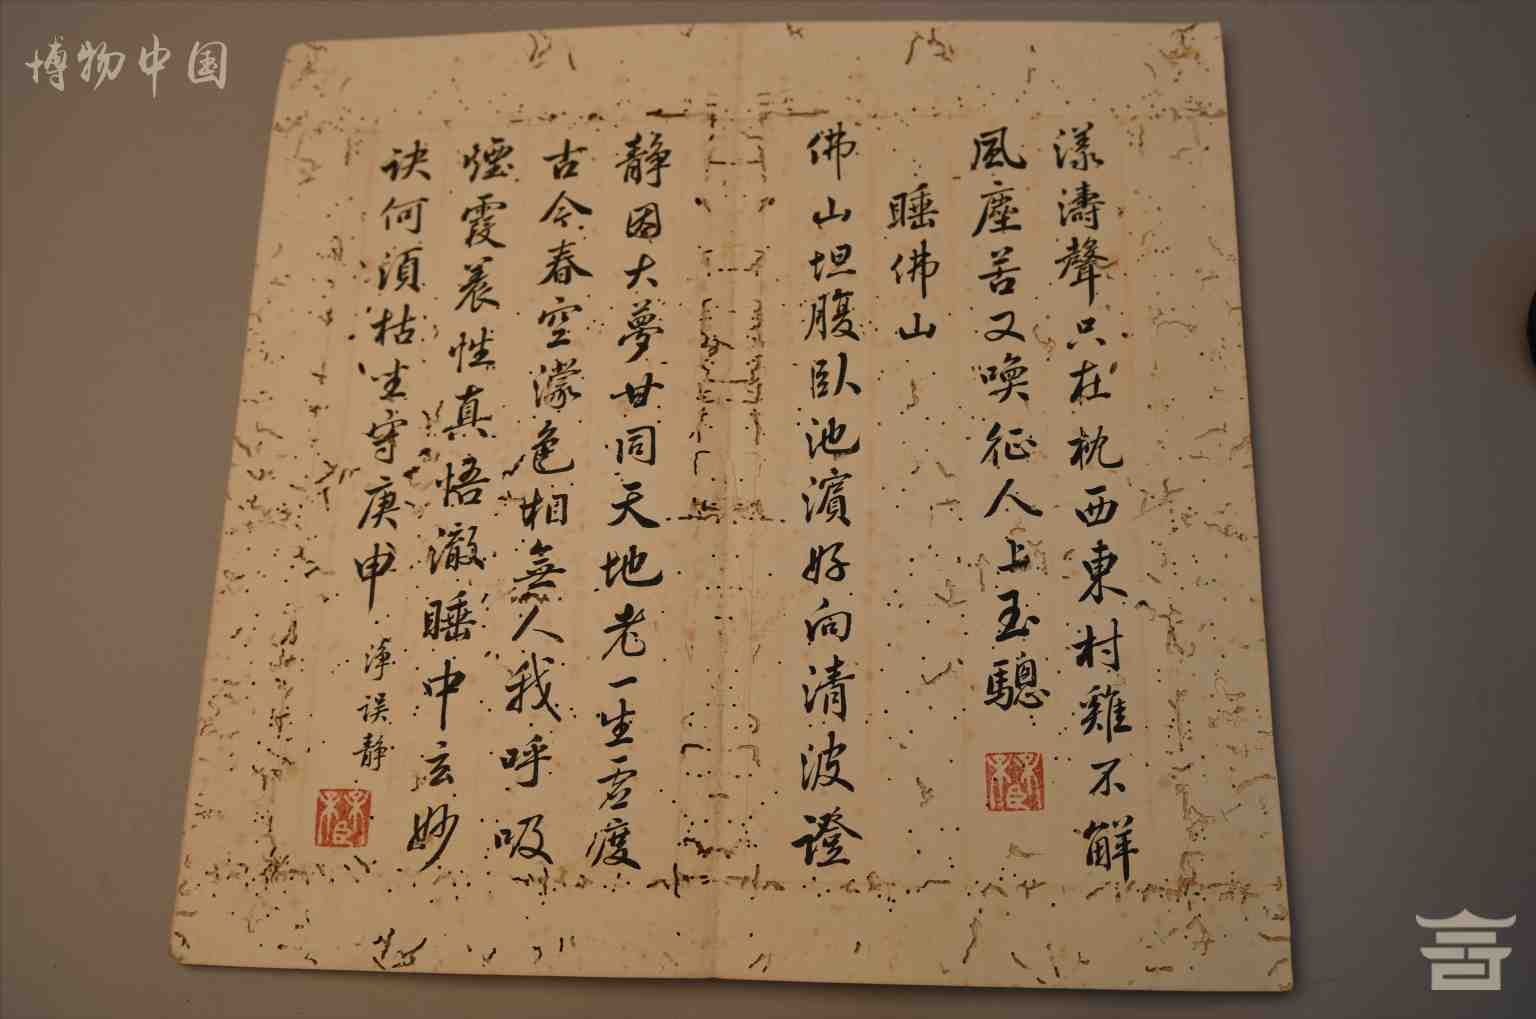 博物中国
漾濤聲只在枕西東村雞不解
風塵苦又喚征人上玉驄
睡佛山
佛山坦腹臥池濱好向清波證
靜因大夢廿同天地老一生虛度
古今春空濛色相無人我呼吸
煙霞養性真悟澈睡中玄妙
訣何須枯坐守庚申
淨誤靜